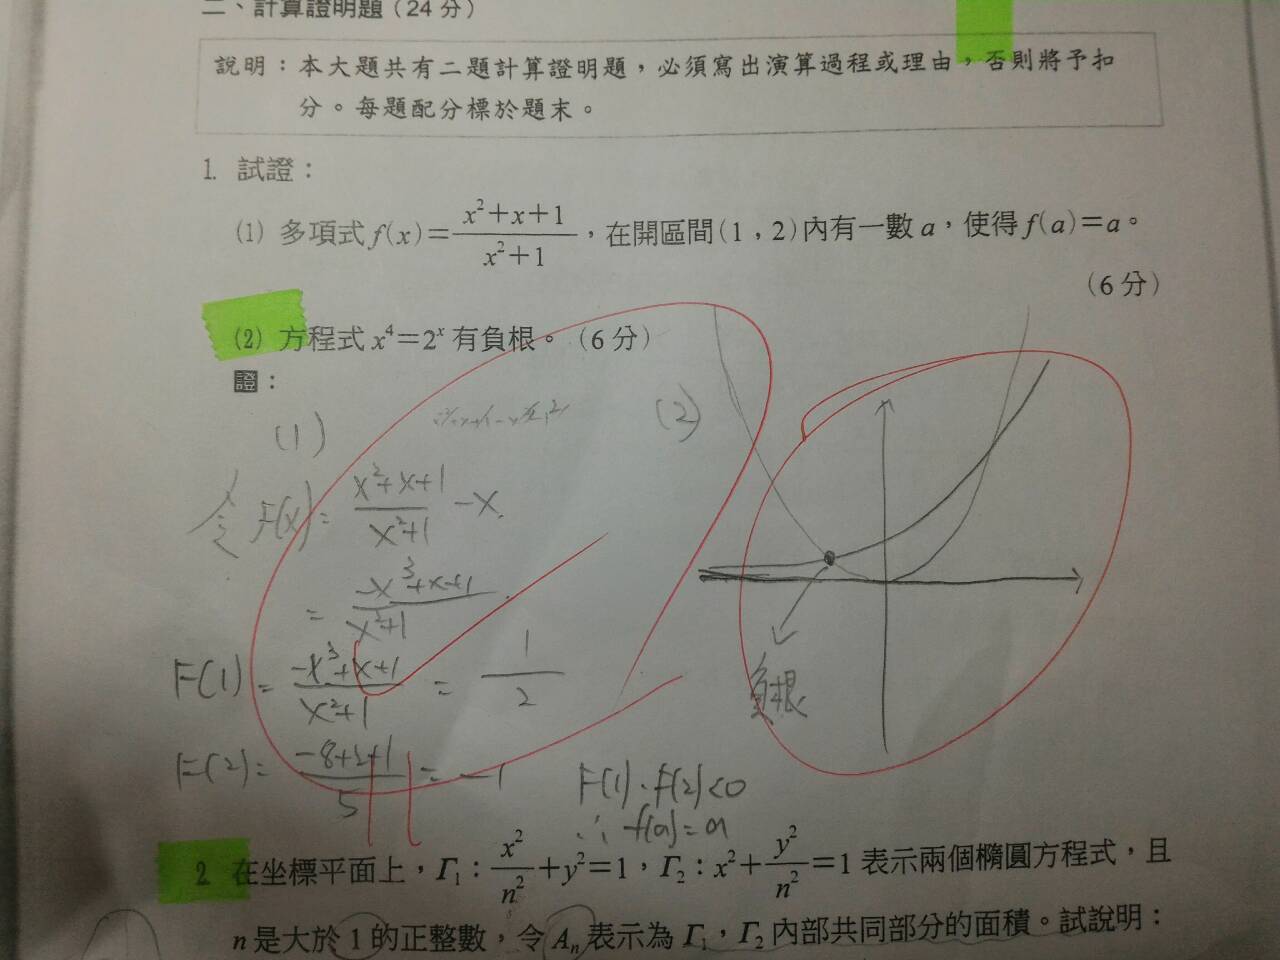 二、計算證明題(24 分)
說明：本大題共有二題計算證明題，必須寫出演算過程或理由，否則將予扣
分。每題配分標於題末。
1. 試證：
(1) 多項式 f(x)=(x²+x+1)/(x²+1)，在開區間(1,2)內有一數 a，使得 f(a)=a。
(6 分)
(2) 方程式 x⁴=2ˣ 有負根。(6 分)
證：
(1)
令 F(x)= (x²+x+1)/(x²+1) -x.
= (-x³+x+1)/(x²+1)
F(1)= (-x³+x+1)/(x²+1) = 1/2
F(2)= (-8+2+1)/5 = -1
F(1)·f(2)<0
∴ f(a)=a
(2)
負根
2. 在坐標平面上，Γ₁：x²/n²+y²=1，Γ₂：x²+y²/n²=1 表示兩個橢圓方程式，且
n 是大於 1 的正整數，令 Aₙ 表示為 Γ₁，Γ₂ 內部共同部分的面積。試說明：